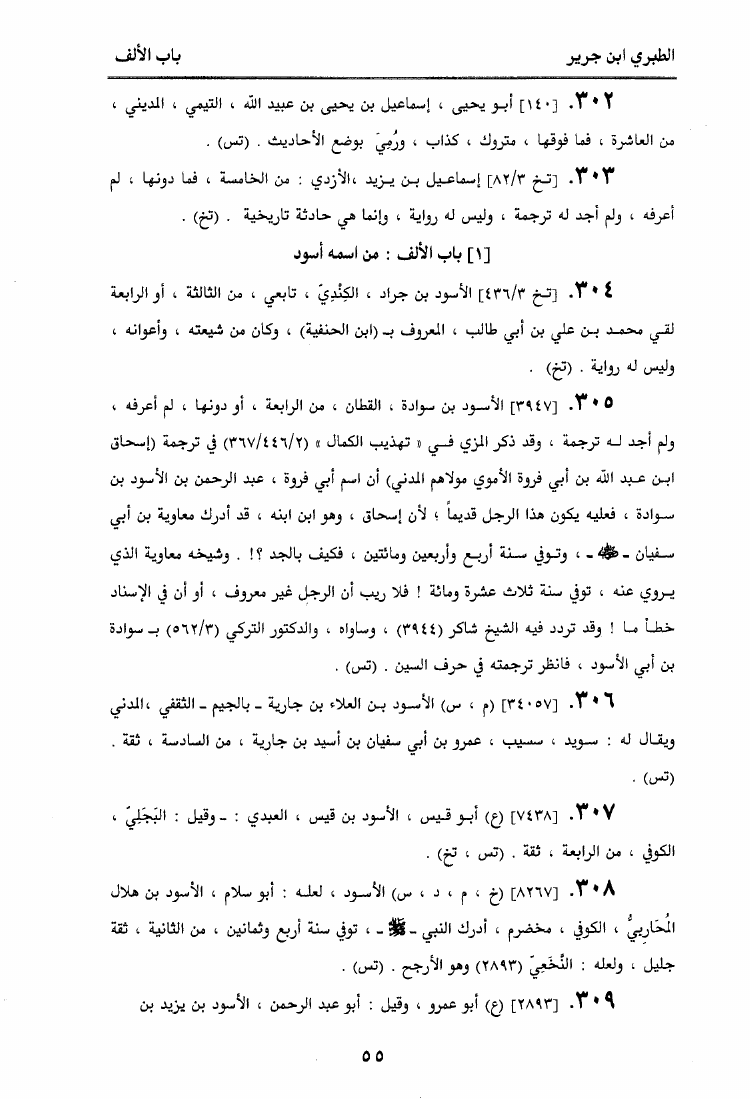 الطبري ابن جرير باب الألف
٣٠٢. [١٤٠] أبو يحيى ، إسماعيل بن يحيى بن عبيد الله ، التيمي ، المديني ،
من العاشرة ، فما فوقها ، متروك ، كذاب ، ورُمِيَ بوضع الأحاديث . (تس) .
٣٠٣. [تخ ٨٢/٣] إسماعيل بن يزيد ،الأزدي : من الخامسة ، فما دونها ، لم
أعرفه ، ولم أجد له ترجمة ، وليس له رواية ، وإنما هي حادثة تاريخية . (تخ) .
[١] باب الألف : من اسمه أسود
٣٠٤. [تخ ٤٣٦/٣] الأسود بن جراد ، الكِنْدِيّ ، تابعي ، من الثالثة ، أو الرابعة
لقي محمد بن علي بن أبي طالب ، المعروف بـ (ابن الحنفية) ، وكان من شيعته ، وأعوانه ،
وليس له رواية . (تخ) .
٣٠٥. [٣٩٤٧] الأسود بن سوادة ، القطان ، من الرابعة ، أو دونها ، لم أعرفه ،
ولم أجد له ترجمة ، وقد ذكر المزي في « تهذيب الكمال » (٣٦٧/٤٤٦/٢) في ترجمة (إسحاق
ابن عبد الله بن أبي فروة الأموي مولاهم المدني) أن اسم أبي فروة ، عبد الرحمن بن الأسود بن
سوادة ، فعليه يكون هذا الرجل قديماً ؛ لأن إسحاق ، وهو ابن ابنه ، قد أدرك معاوية بن أبي
سفيان ـ ﷺ ـ ، وتوفي سنة أربع وأربعين ومائتين ، فكيف بالجد ؟! . وشيخه معاوية الذي
يروي عنه ، توفي سنة ثلاث عشرة ومائة ! فلا ريب أن الرجل غير معروف ، أو أن في الإسناد
خطأ ما ! وقد تردد فيه الشيخ شاكر (٣٩٤٤) ، وساواه ، والدكتور التركي (٥٦٢/٣) بـ سوادة
بن أبي الأسود ، فانظر ترجمته في حرف السين . (تس) .
٣٠٦. [٣٤٠٥٧] (م ، س) الأسود بن العلاء بن جارية ـ بالجيم ـ الثقفي ،المدني
ويقال له : سويد ، سسيب ، عمرو بن أبي سفيان بن أسيد بن جارية ، من السادسة ، ثقة .
(تس) .
٣٠٧. [٧٤٣٨] (ع) أبو قيس ، الأسود بن قيس ، العبدي : ـ وقيل : البَجَلِيّ ،
الكوفي ، من الرابعة ، ثقة . (تس ، تخ) .
٣٠٨. [٨٢٦٧] (خ ، م ، د ، س) الأسود ، لعله : أبو سلام ، الأسود بن هلال
المُحَارِبيُّ ، الكوفي ، مخضرم ، أدرك النبي ـ ﷺ ـ ، توفي سنة أربع وثمانين ، من الثانية ، ثقة
جليل ، ولعله : النَّخَعِيّ (٢٨٩٣) وهو الأرجح . (تس) .
٣٠٩. [٢٨٩٣] (ع) أبو عمرو ، وقيل : أبو عبد الرحمن ، الأسود بن يزيد بن
٥٥